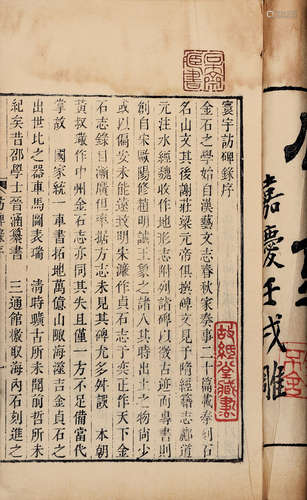 嘉慶壬戌雕
寰宇訪碑錄序
金石之學始自漢藝文志春秋家奏事二十篇載秦刻石
名山文其後謝莊梁元帝俱撰碑文見于隋經籍志酈道
元注水經魏收作地形志附列諸碑以徵古迹而專書則
創自宋歐陽修趙明誠王象之諸人其時出土之物尚少
或以偏安未能宋濂作金石志于奕正作天下金
石志錄目漸廣俱方志未見其碑尤多舛誤 本朝
黃叔璥作中州金石志亦同其失且僅一方不足備當代
掌故 國家統一車書拓地萬億山陬海澨吉金貞石之
出世比之器車馬圖表瑞 清時曠古所未聞前哲所未
紀矣昔邵學士晉涵纂書 三通館檄取海內石刻進之